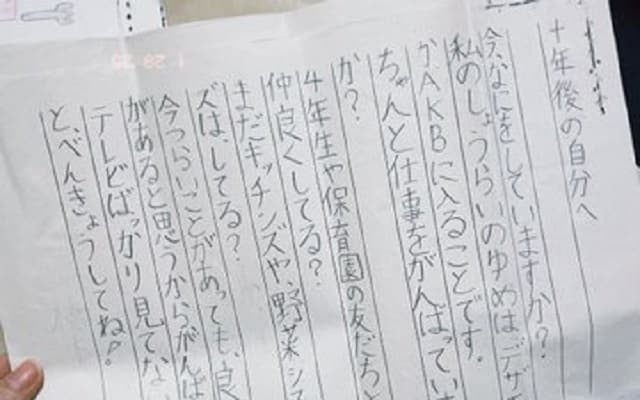 十年後の自分へ
今、なにをしていますか？
私のしょうらいのゆめはデザ
かAKBに入ることです。
ちゃんと仕事をがんばってい
か？
4年生や保育園の友だちと
仲良くしてる？
まだキッチンズや、野菜シス
ズは、してる？
今つらいことがあっても、良
があると思うからがんば
テレビばっかり見てな
と、べんきょうしてね！